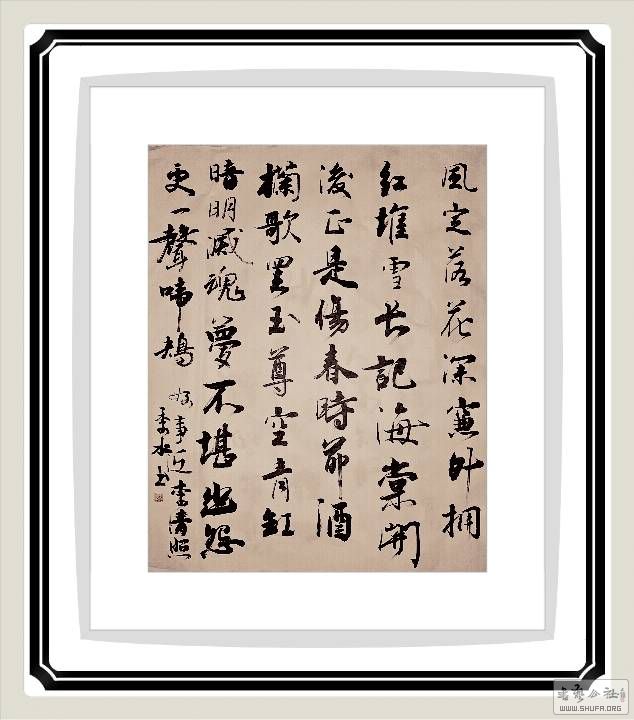 風定落花深簾外擁
紅堆雪長記海棠開
後正是傷春時節酒
欄歌罷玉尊空青缸
暗明滅魂夢不堪幽怨
更一聲啼鴂
好事近李清照
书
書藝公社
WWW.SHUFA.ORG